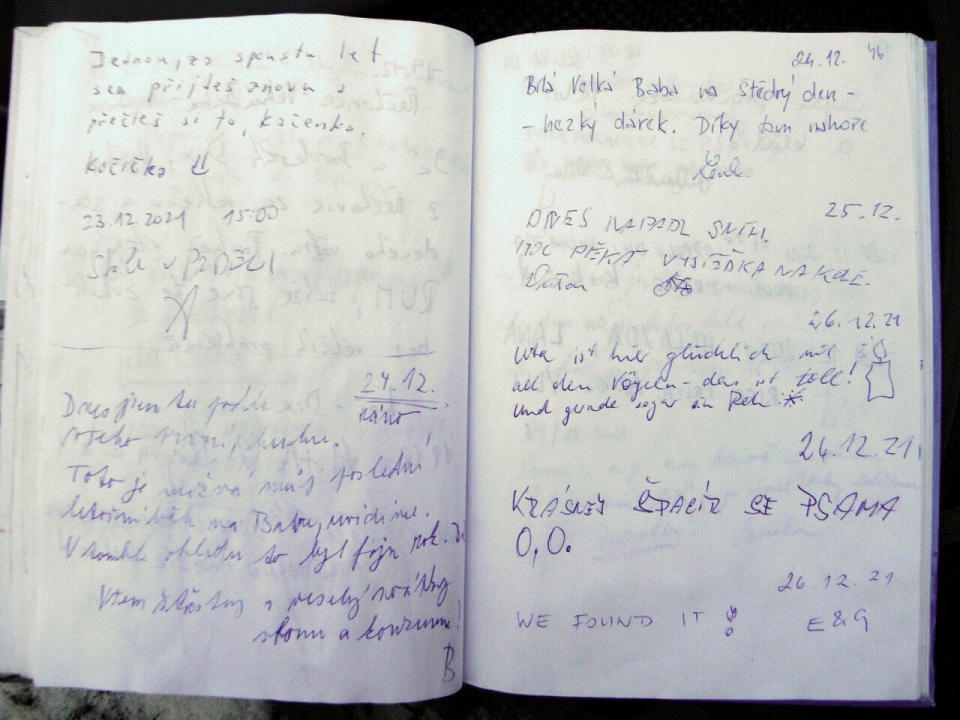 Jednou, za spoustu let
sem přijdeš znovu a
přečteš si to, kočenko.
Kočička
23.12.2021 15:00
24.12.
ráno
Dnes jsem tu podle
všeho první,
Toto je možná můj poslední
letošní běh na Babu, uvidíme.
V tomhle ohledu to byl fajn rok.
Všem šťastný a veselý svátky
stromu a konzumu!
B
24.12. 46
Bílá Velká Baba na Štědrý den -
- hezký dárek. Díky tam nahoře
25.12.
DNES NAPADL SNÍH.
MOC PĚKÁ VYJÍŽĎKA NA KOLE.
26.12.21
Uta ist hier glücklich mit
all den Vögeln - das ist toll!
und gerade sogar ein Reh.
26.12.21
KRÁSNEJ ŠPACÍR SE PSAMA
O,O.
26.12.21
WE FOUND IT !
E&G